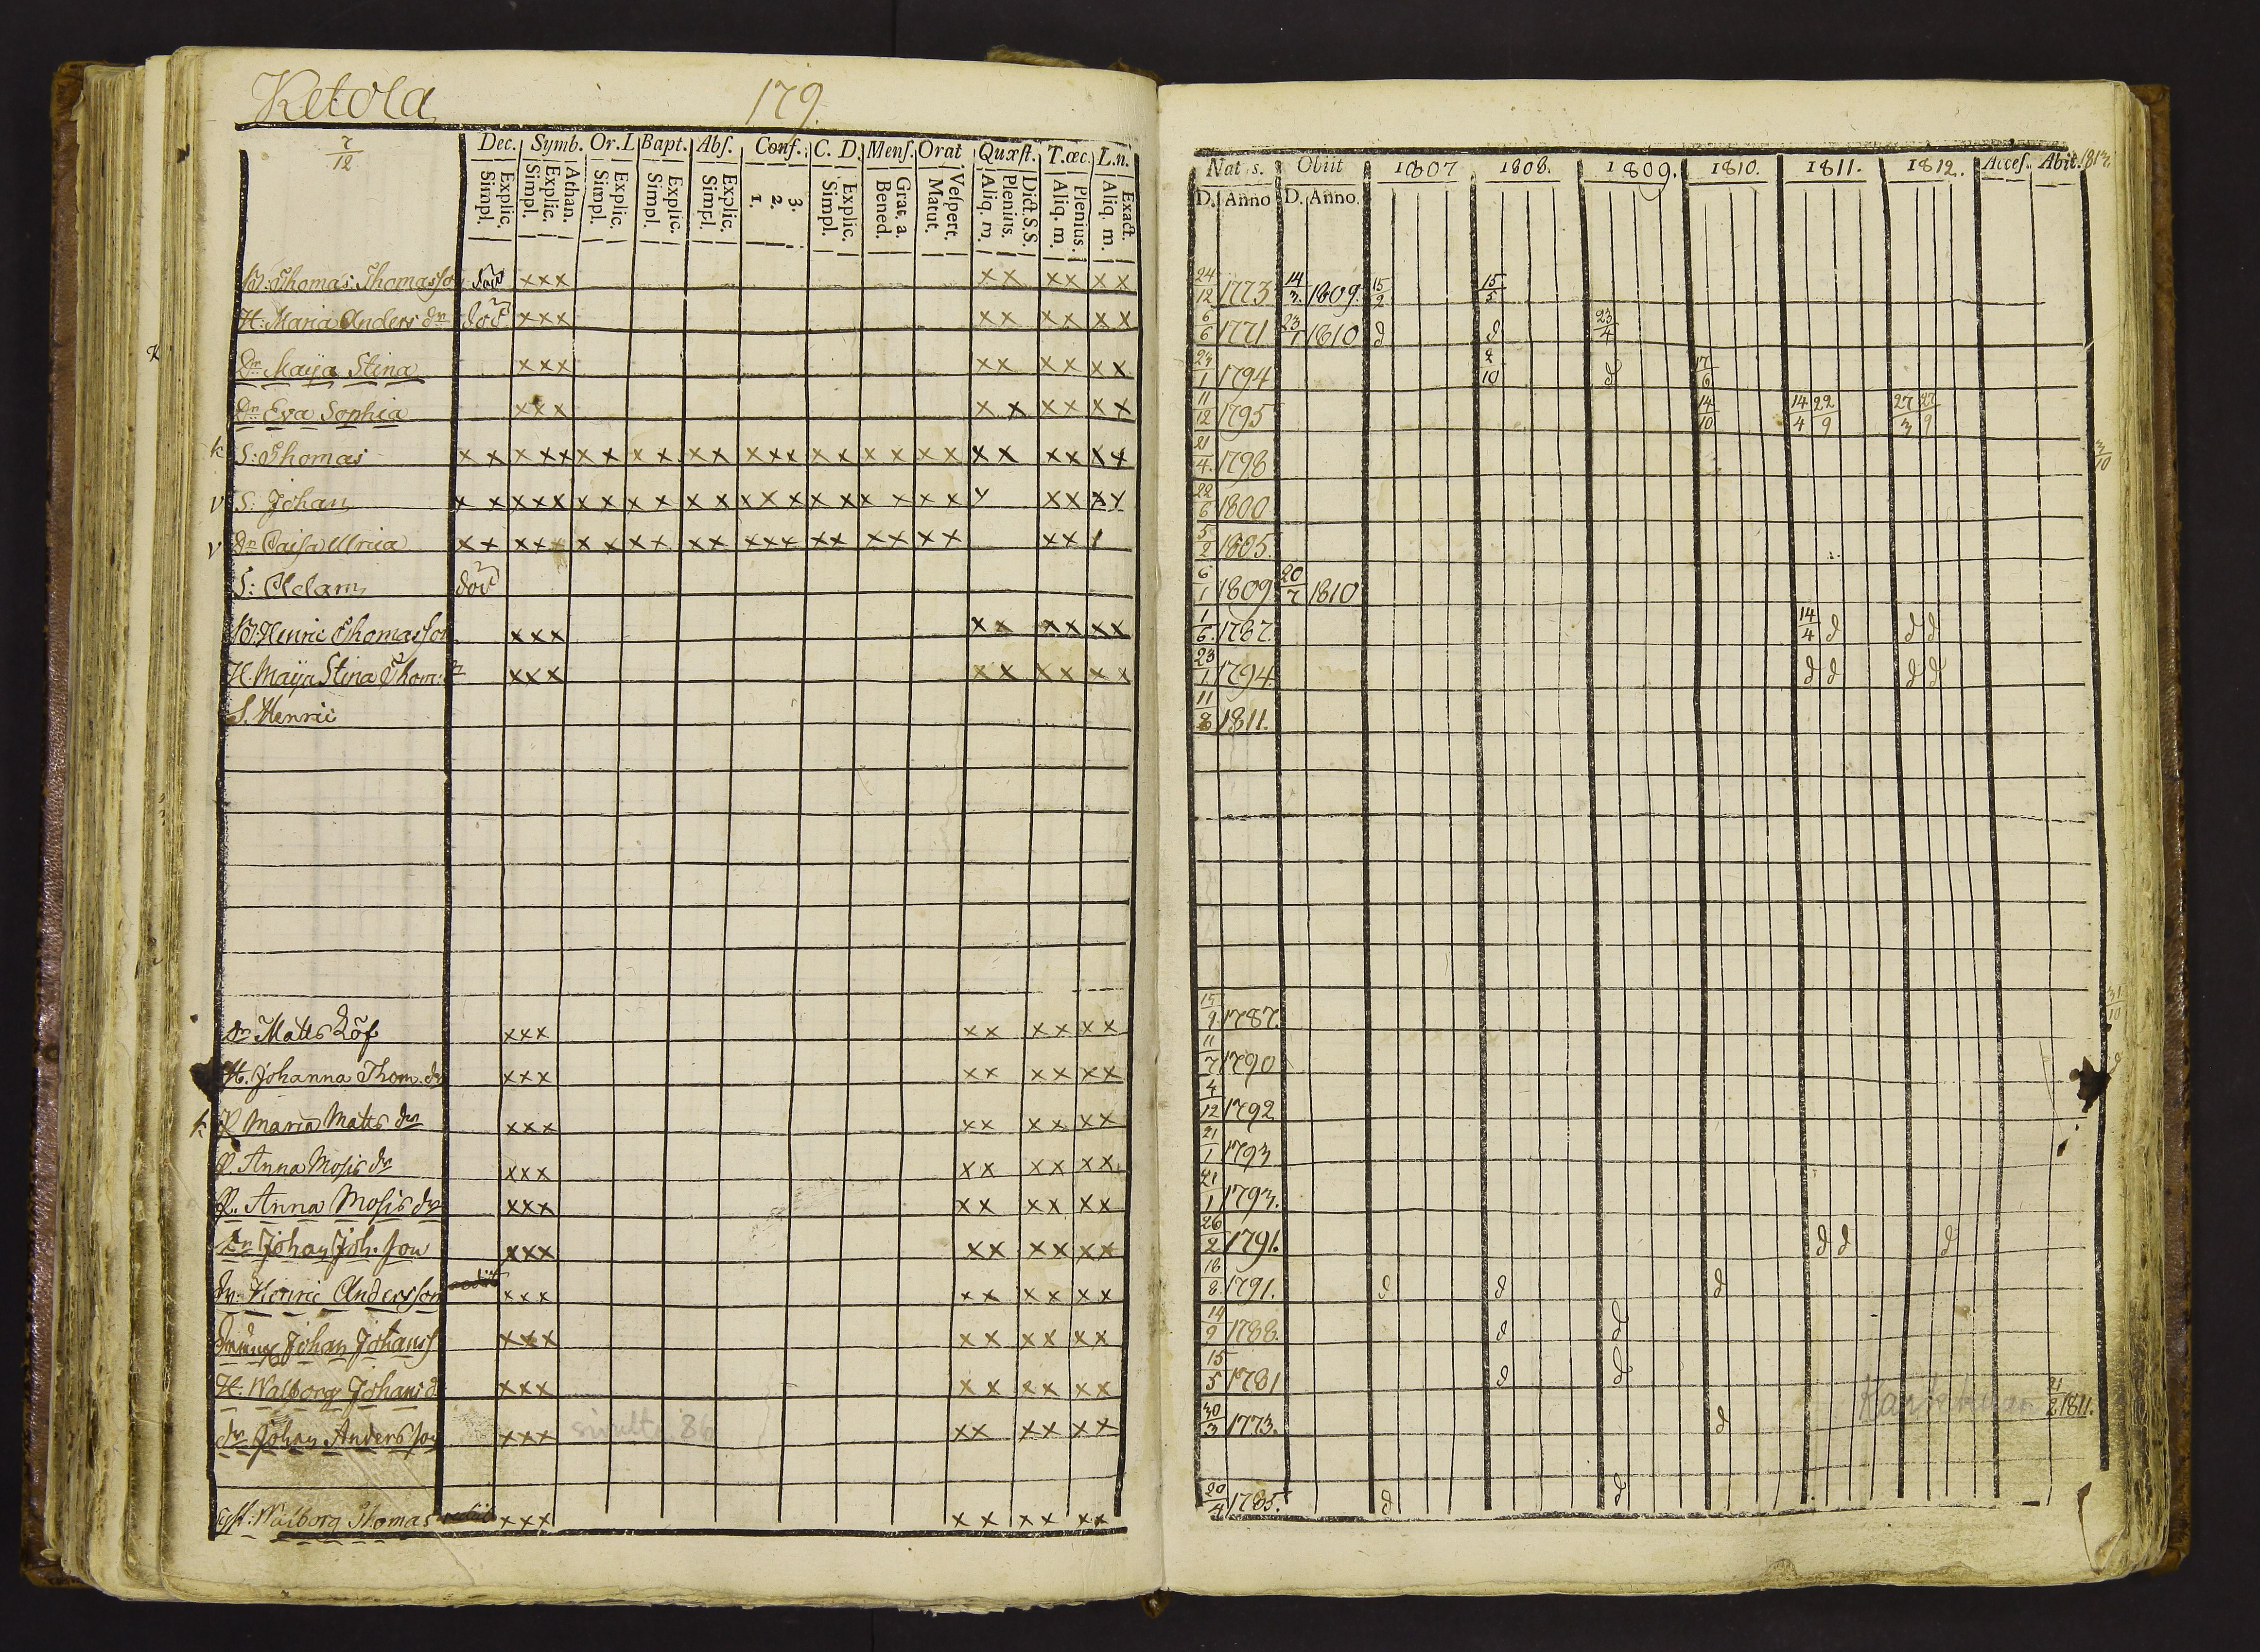 Ketola 179.
7/12 Dec. Symb. Or.L Bapt. Abſ. Conf. C. D. Menſ. Orat Quæſt. T.œc. L.n.
Explic. Simpl. Athan. Explic. Simpl. Explic. Simpl. Explic. Simpl. Explic. Simpl. 3. 2. 1. Explic. Simpl. Grat. a. Bened. Veſpert. Matut. Dict.S.S. Plenius. Aliq. m. Plenius. Aliq. m. Exact. Aliq. m.
B: Thomas Thomasson död xxx xx xx xx
H: Maria Anders dr död xxx xx xx xx
Dr Maija Stina xxx xx xx xx
Dr Eva Sophia xxx xx xx xx
k S: Thomas xx xxx xx xx xx xxx xx xx xx xx xx xx
v S: Johan xx xxx xx xx xx xxx xx xx xx x xx xx
v Dr Caisa Ulrica xx xxx xx xx xx xxx xx xx xx xx
S: Adam död
B: Henric Thomasson xxx xx xx xx
H. Maija Stina Thom: dr xxx xx xx xx
S. Henric
dr Matts Löf xxx xx xx xx
H. Johanna Thom. dr xxx xx xx xx
k P Maria Matts dr xxx xx xx xx
P. Anna Mosis dr xxx xx xx xx
P. Anna Mosis dr xxx xx xx xx
dr Johan Joh. son xxx xx xx xx
dr: Henric Andersson xxx xx xx xx
Johan Johanss xxx xx xx xx
H: Walborg Johans d xxx xx xx xx
dr Johan Anders son xxx xx xx xx
Walborg Thomas xxx xx xx xx
Nat s. Obiit 1807 1808. 1809. 1810. 1811. 1812. Acceſ. Abit. 1813.
D. Anno D. Anno.
24/12 1773 14/3 1809. 15/2 15/5
6/6 1771 23/1 1810 d d 23/4
23/1 1794 2/10 d 17/6
11/12 1795 14/10 14/4 22/9 27/3 27/9
21/4 1798 3/10
22/6 1800
5/2 1805.
6/1 1809 20/7 1810
1/6 1787. 14/4 d d d
23/1 1794. d d d d
11/8 1811.
15/9 1787. 31/10
11/7 1790 d
4/12 1792
21/1 1793
21/1 1793.
26/2 1791. d d d
18/8 1791. d d d
14/9 1788. d d
15/5 1781 d d
30/3 1773. d 21/2 1811.
20/4 1785. d d